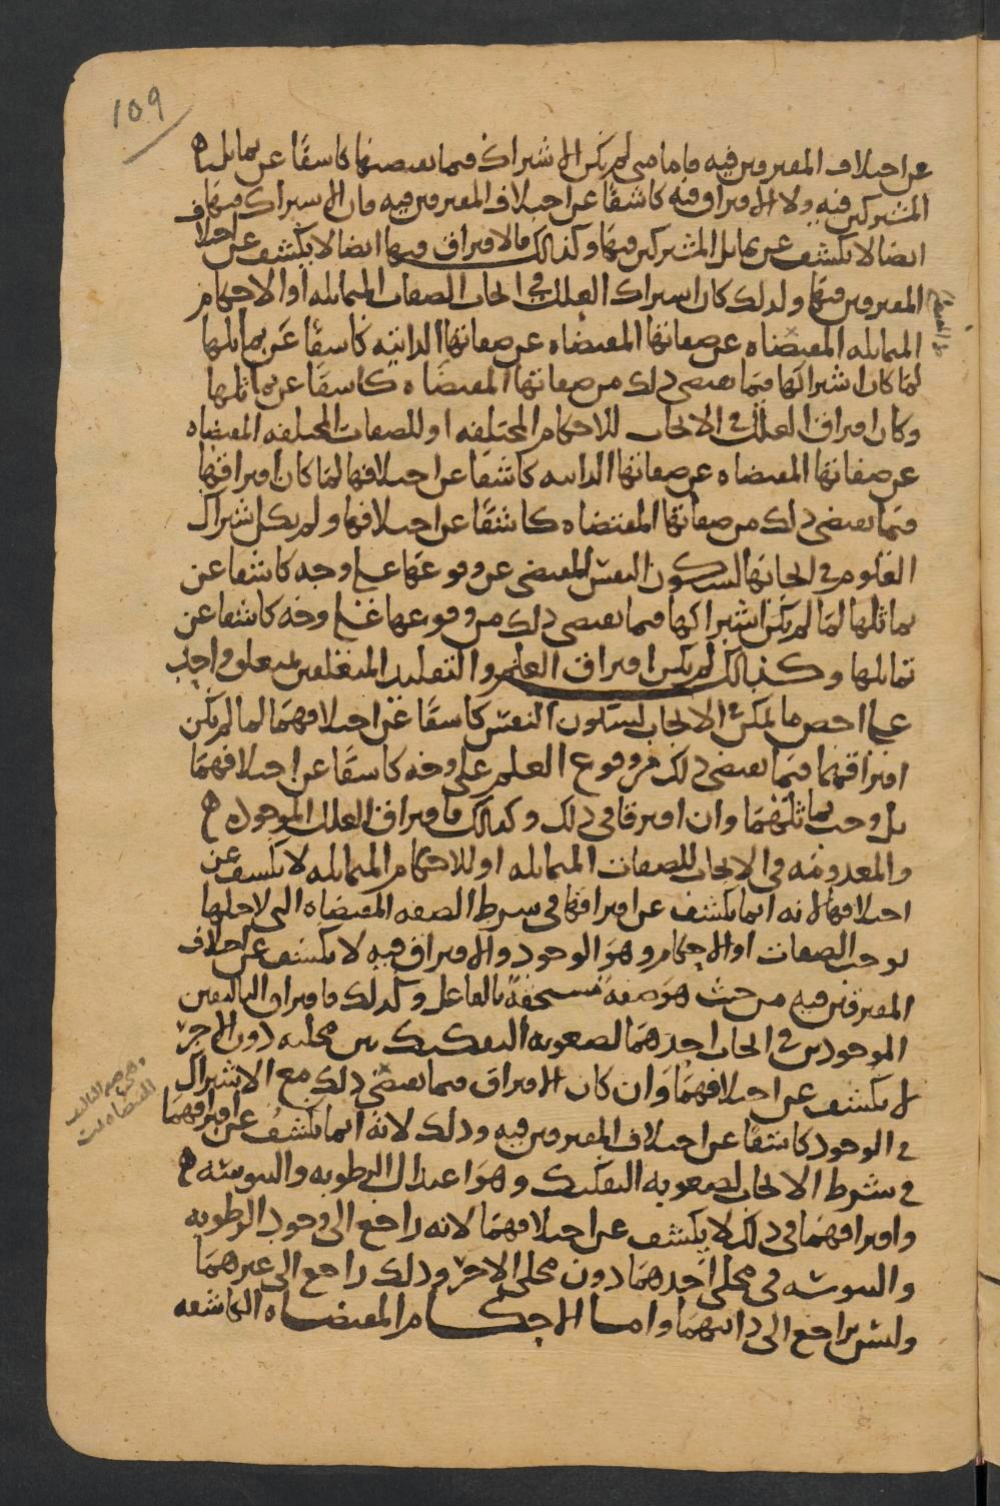 109
عن اختلاف المفترقين فيه فاما متى لم يكن الاشتراك فيما يقتضيها كاشفا عن تماثل
المشتركين فيه ولا الافتراق فيه كاشفا عن اختلاف المفترقين فيه فان الاشتراك فيها
ايضا لا يكشف عن تماثل المشتركين فيها وكذلك فالافتراق فيها ايضا لا يكشف عن اختلاف
المفترقين فيها ولذلك كان اشتراك العلل في ايجاب الصفات المتماثله او الاحكام
المتماثله المقتضاه عن صفاتها المقتضاه عن صفاتها الذاتيه كاشفا عن تماثلها
لما كان اشتراكها فيما يقتضي ذلك من صفاتها المقتضاه كاشفا عن تماثلها
وكان افتراق العلل في الايجاب للاحكام المختلفه او للصفات المختلفه المقتضاه
عن صفاتها المقتضاه عن صفاتها الذاتيه كاشفا عن اختلافها لما كان افتراقها
فيما يقتضي ذلك من صفاتها المقتضاه كاشفا عن اختلافها ولم يكن اشتراك
العلوم في ايجابها لسكون النفس المقتضى عن وقوعها على وجه كاشفا عن
تماثلها لما لم يكن اشتراكها فيما يقتضي ذلك من وقوعها على وجه كاشفا عن
تماثلها وكذلك لم يكن افتراق العلم والتقليد المتعلقين بمتعلق واحد
على اخص ما يمكن في الايجاب لسكون النفس كاشفا عن اختلافهما لما لم يكن
افتراقهما فيما يقتضي ذلك من وقوع العلم على وجه كاشفا عن اختلافهما
بل وجب تماثلهما وان افترقا في ذلك وكذلك فافتراق العلل الموجوده
والمعدومه في الايجاب للصفات المتماثله او للاحكام المتماثله لا يكشف عن
اختلافها لانه انما يكشف عن افتراقها في شرط الصفه المقتضاه التي لاجلها
توجب الصفات او الاحكام وهو الوجود والافتراق فيه لا يكشف عن اختلاف
المفترقين فيه من حيث هو صفه مستحقة بالفاعل وكذلك فافتراق التاليفين
الموجودين في ايجاب احدهما لصعوبه التفكيك بين محليه دون الاخر
لا يكشف عن اختلافهما وان كان الافتراق فيما يقتضي ذلك مع الاشتراك
في الوجود كاشفا عن اختلاف المفترقين فيه وذلك لانه انما يكشف عن افتراقهما
في شرط الايجاب لصعوبه التفكيك وهو اعتدال الرطوبه واليبوسه
وافتراقهما في ذلك لا يكشف عن اختلافهما لانه راجع الى وجود الرطوبه
واليبوسه في محل احدهما دون محل الاخر وذلك راجع الى غيرهما
وليس براجع الى ذاتيهما واما الاحكام المقتضاه الكاشفه